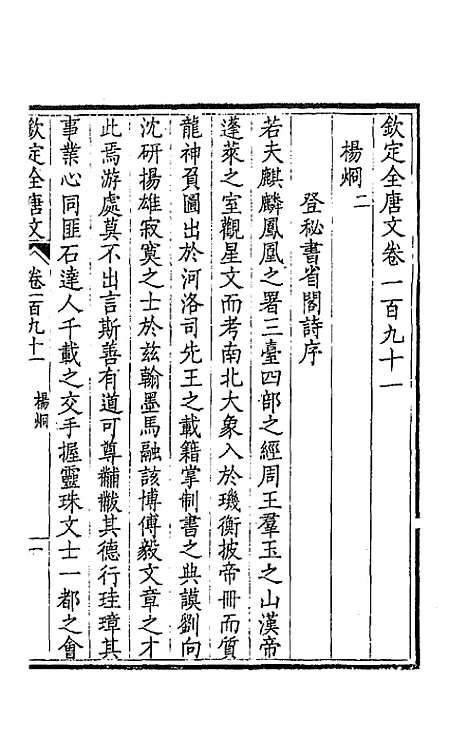 欽定全唐文卷一百九十一
楊烱二
登秘書省閣詩序
若夫麒麟鳳凰之署三臺四部之經周王羣玉之山漢帝
蓬萊之室觀星文而考南北大象入於璣衡披帝冊而質
龍神負圖出於河洛司先王之載籍掌制書之典謨劉向
沈研揚雄寂寞之士於兹翰墨馬融該博傅毅文章之才
此焉游處莫不出言斯善有道可尊黼黻其德行珪璋其
事業心同匪石達人千載之交手握靈珠文士一都之會
欽定全唐文
卷一百九十一
楊烱
一